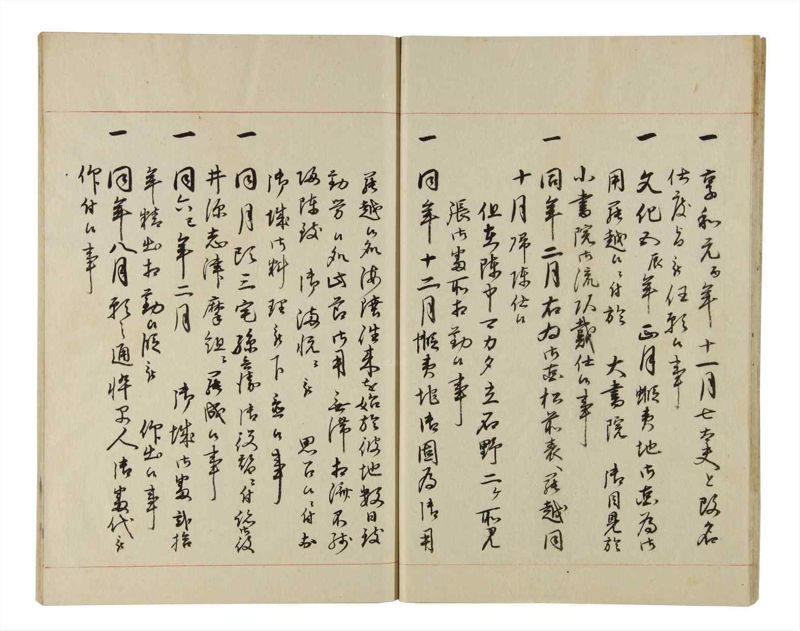 一 享和元酉年十一月七太夫と改名
仕度旨被任願候事
一 文化五辰年正月蝦夷地御固為御
用罷越候ニ付於 大書院 御目見於
小書院御流頂戴仕候事
一 同年二月右為御固松前表へ罷越同
十月帰陣仕候
但在陣中マカタ立石野二ヶ所見
張御番所相勤候事
一 同年十二月蝦夷地御固為御用
罷越候処海陸往来を始於彼地数日致
勤労候処此節御用無滞相済不残
帰陣致 御満悦被 思召候ニ付於
御城御料理被下置候事
一 同月頃三宅孫兵衛御役替ニ付
井深志津摩組ニ罷成候事
一 同六巳年二月 御城御番
年精出相勤候段被 仰出候事
一 同年八月願之通忰早人御番代被
仰付候事